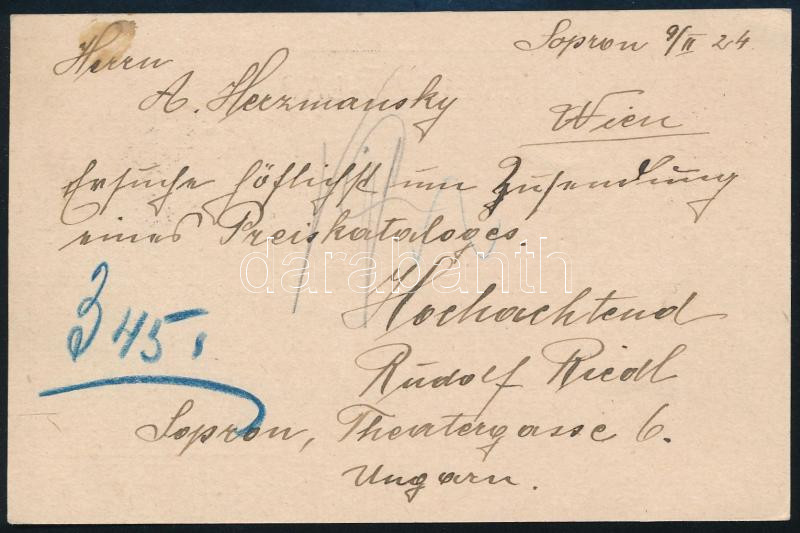 Sopron 9/II 24.
Herrn
A. Herzmansky
Wien
Ersuche höflichst um Zusendung
eines Preiskataloges.
darabanth
Hochachtend
345.
Rudolf Riedl
Sopron, Theatergasse 6.
Ungarn.